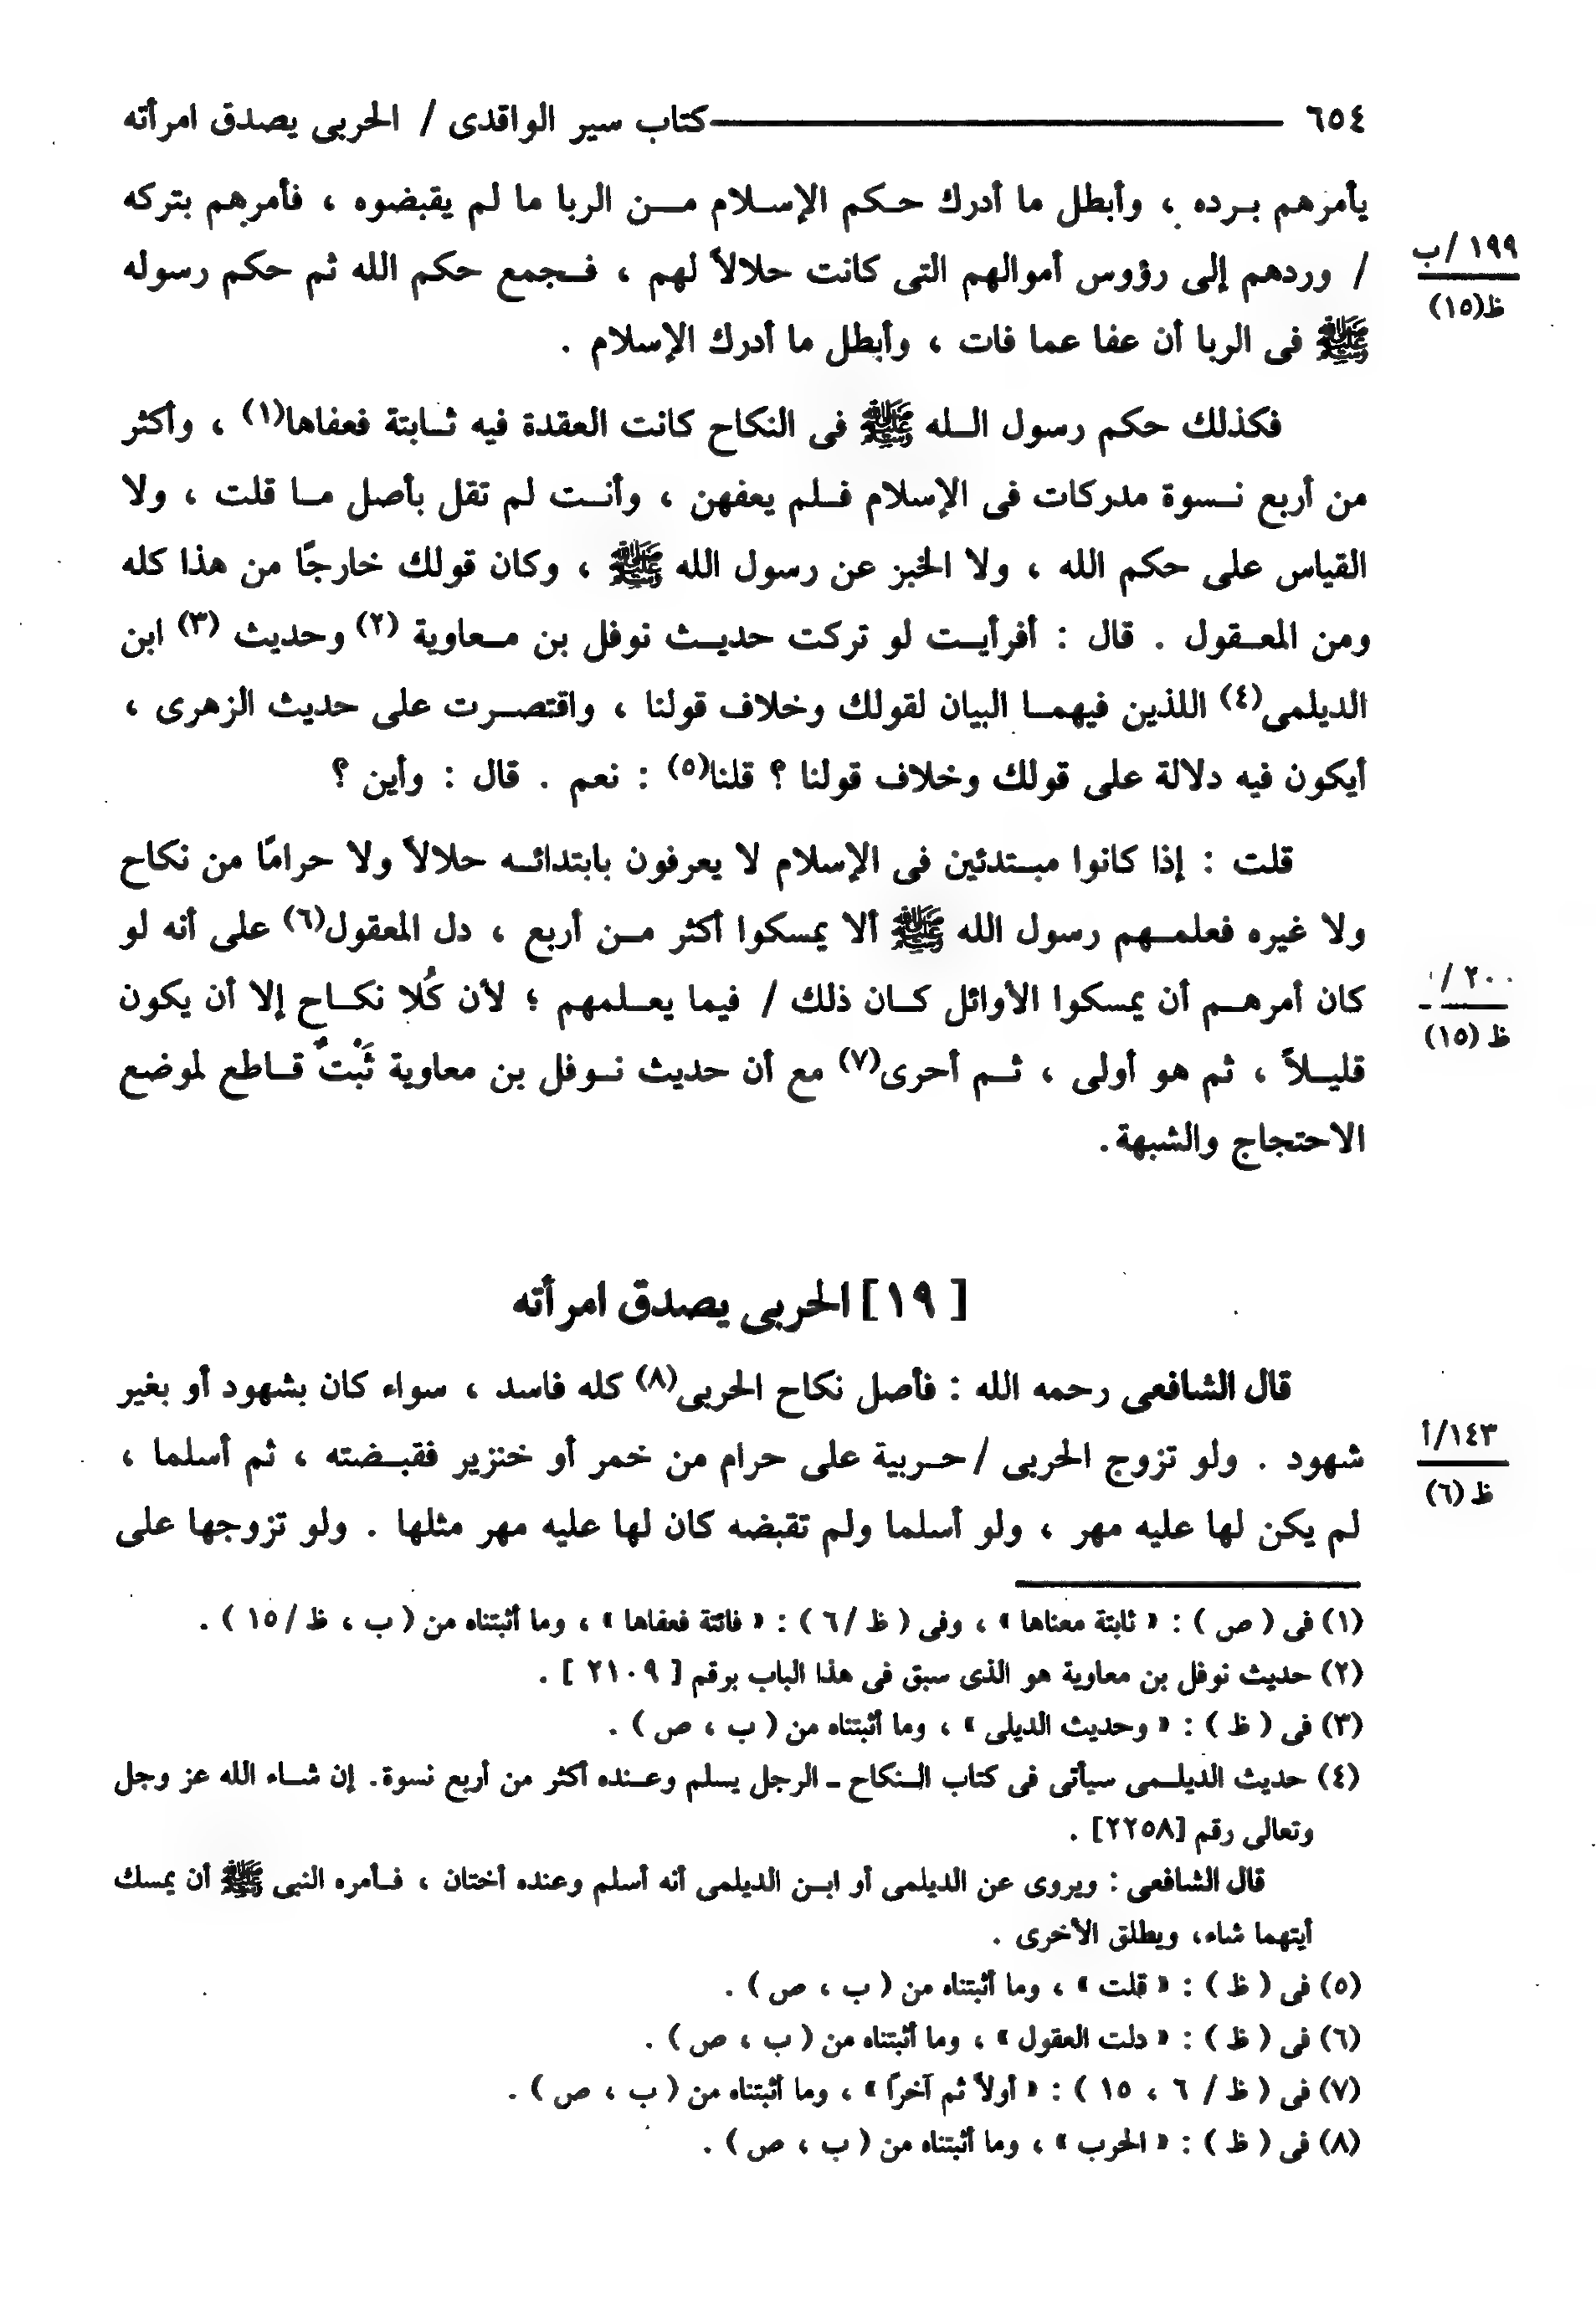 ٦٥٤ ــــــــــ كتاب سير الواقدى / الحربى يصدق امرأته
يأمرهم بـرده ، وأبطل ما أدرك حـكم الإسـلام مـــن الربا ما لم يقبضوه ، فأمرهم بتركه
١٩٩ /ب
ظ(١٥)
/ وردهم إلى رؤوس أموالهم التى كانت حلالاً لهم ، فـجمع حكم الله ثم حكم رسوله
ﷺ فى الربا أن عفا عما فات ، وأبطل ما أدرك الإسلام .
فكذلك حكم رسول الـله ﷺ فى النكاح كانت العقدة فيه ثـابتة فعفاها(١) ، وأكثر
من أربع نـسوة مدركات فى الإسلام فـلم يعفهن ، وأنـت لم تقل بأصل مـا قلت ، ولا
القياس على حكم الله ، ولا الخبز عن رسول الله ﷺ ، وكان قولك خارجًا من هذا كله
ومن المعـقول . قال : أفرأيـت لو تركت حديـث نوفل بن مـعاوية (٢) وحديث (٣) ابن
الديلمى(٤) اللذين فيهمـا البيان لقولك وخلاف قولنا ، واقتصـرت على حديث الزهرى ،
أيكون فيه دلالة على قولك وخلاف قولنا ؟ قلنا(٥) : نعم . قال : وأين ؟
قلت : إذا كانوا مبـتدئين فى الإسلام لا يعرفون بابتدائـه حلالاً ولا حرامًا من نكاح
ولا غيره فعلمـهم رسول الله ﷺ ألا يمسكوا أكثر مـن أربع ، دل المعقول(٦) على أنه لو
٢٠٠ /
ظ (١٥)
كان أمرهـم أن يمسكوا الأوائل كـان ذلك / فيما يعـلمهم ؛ لأن كُلا نكـاح إلا أن يكون
قليـلاً ، ثم هو أولى ، ثـم أحرى(٧) مع أن حديث نـوفل بن معاوية ثَبْتٌ قـاطع لموضع
الاحتجاج والشبهة .
[ ١٩ ] الحربى يصدق امرأته
قال الشافعى رحمه الله : فأصل نكاح الحربى(٨) كله فاسد ، سواء كان بشهود أو بغير
١٤٣/أ
ظ (٦)
شهود . ولو تزوج الحربى /حـربية على حرام من خمر أو خنزير فقبـضته ، ثم أسلما ،
لم يكن لها عليه مهر ، ولو أسلما ولم تقبضه كان لها عليه مهر مثلها . ولو تزوجها على
(١) فى ( ص ) : « ثابتة معناها » ، وفى ( ظ /٦ ) : « فائتة فعفاها » ، وما أثبتناه من ( ب ، ظ /١٥ ) .
(٢) حديث نوفل بن معاوية هو الذى سبق فى هذا الباب برقم [ ٢١٠٩ ] .
(٣) فى ( ظ ) : « وحديث الديلى » ، وما أثبتناه من ( ب ، ص ) .
(٤) حديث الديلـمى سيأتى فى كتاب الـنكاح ـ الرجل يسلم وعـنده أكثر من أربع نسوة. إن شـاء الله عز وجل
وتعالى رقم [٢٢٥٨] .
قال الشافعى : ويروى عن الديلمى أو ابـن الديلمى أنه أسلم وعنده أختان ، فـأمره النبى ﷺ أن يمسك
أيتهما شاء، ويطلق الأخرى .
(٥) فى ( ظ ) : « قلت » ، وما أثبتناه من ( ب ، ص ) .
(٦) فى ( ظ ) : « دلت العقول » ، وما أثبتناه من ( ب ، ص ) .
(٧) فى ( ظ / ٦ ، ١٥ ) : « أولاً ثم آخرًا » ، وما أثبتناه من ( ب ، ص ) .
(٨) فى ( ظ ) : « الحرب » ، وما أثبتناه من ( ب ، ص ) .